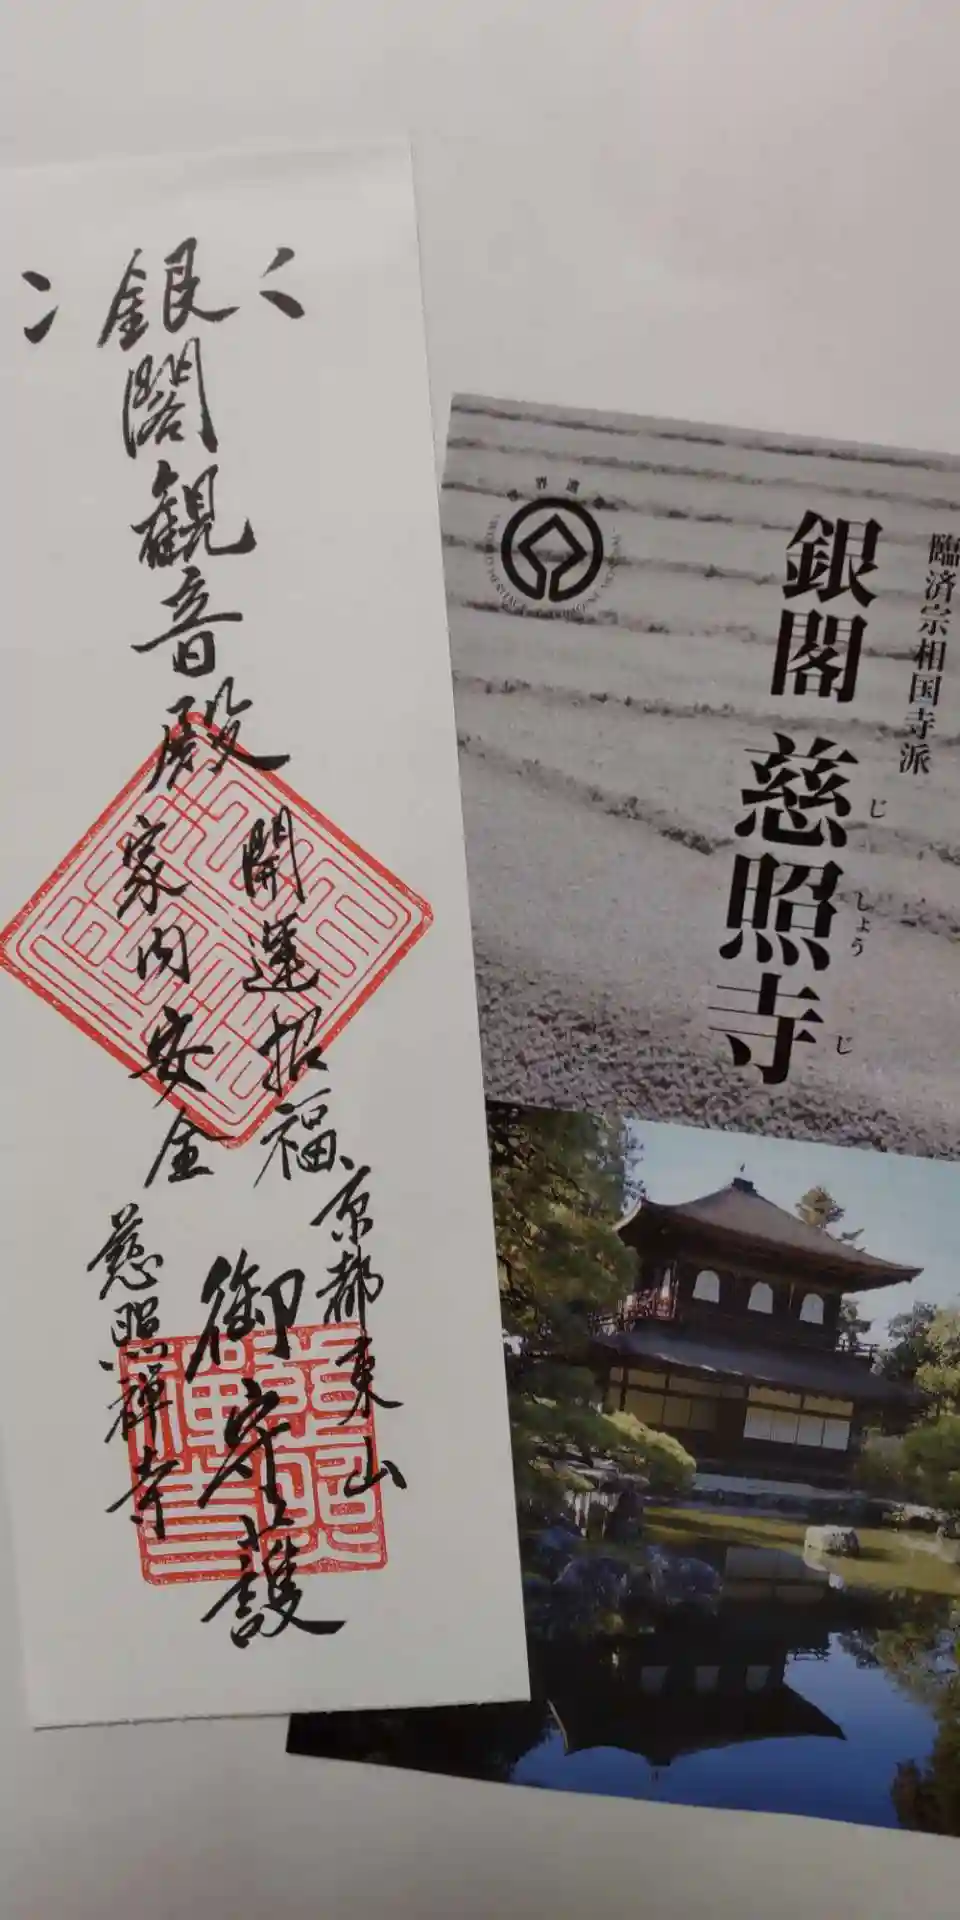 銀閣観音殿
開運招福
家内安全
京都東山
御守護
慈照禅寺
臨済宗相国寺派
銀閣 慈照寺
じ しょう じ
世界遺産